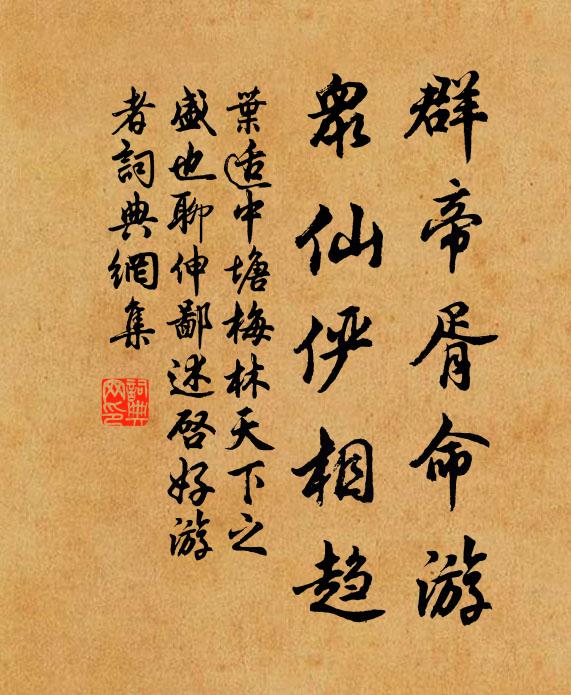 群帝胥命游
眾仙俨相趋
葉适中塘梅林天下之
盛也聊伸鄙述啓好游
者詞典網集
詞典
网印